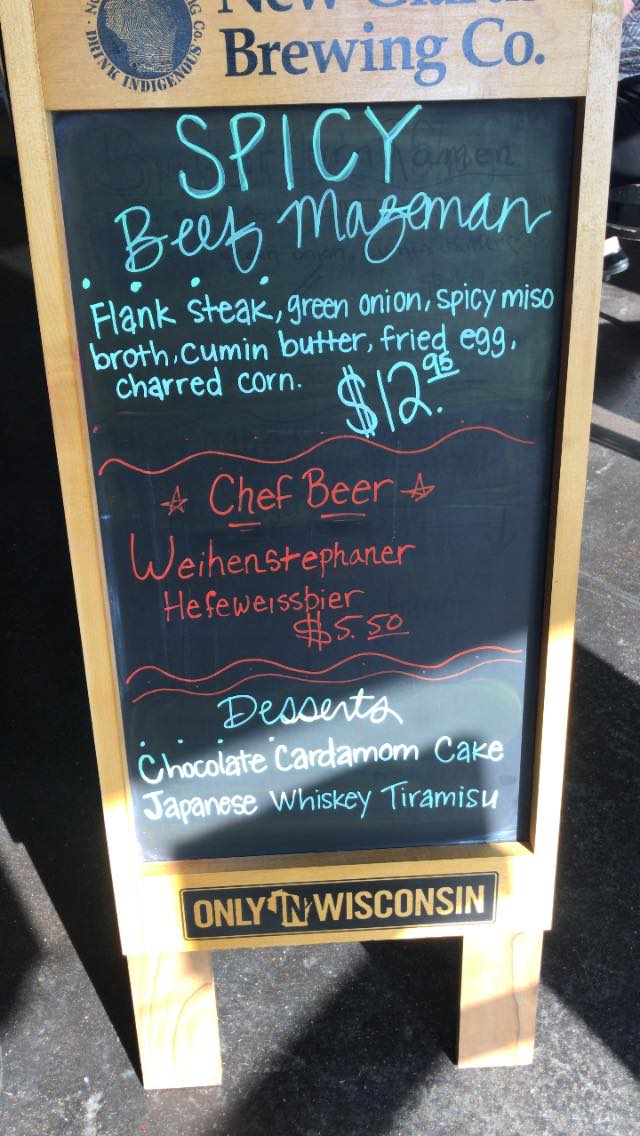 DRINK INDIGENOUS
Brewing Co.
SPICY
Beef Mazeman
Flank steak, green onion, spicy miso
broth, cumin butter, fried egg,
charred corn. $12.95
Chef Beer
Weihenstephaner
Hefeweissbier
$5.50
Desserts
Chocolate Cardamom Cake
Japanese Whiskey Tiramisu
ONLY IN WISCONSIN